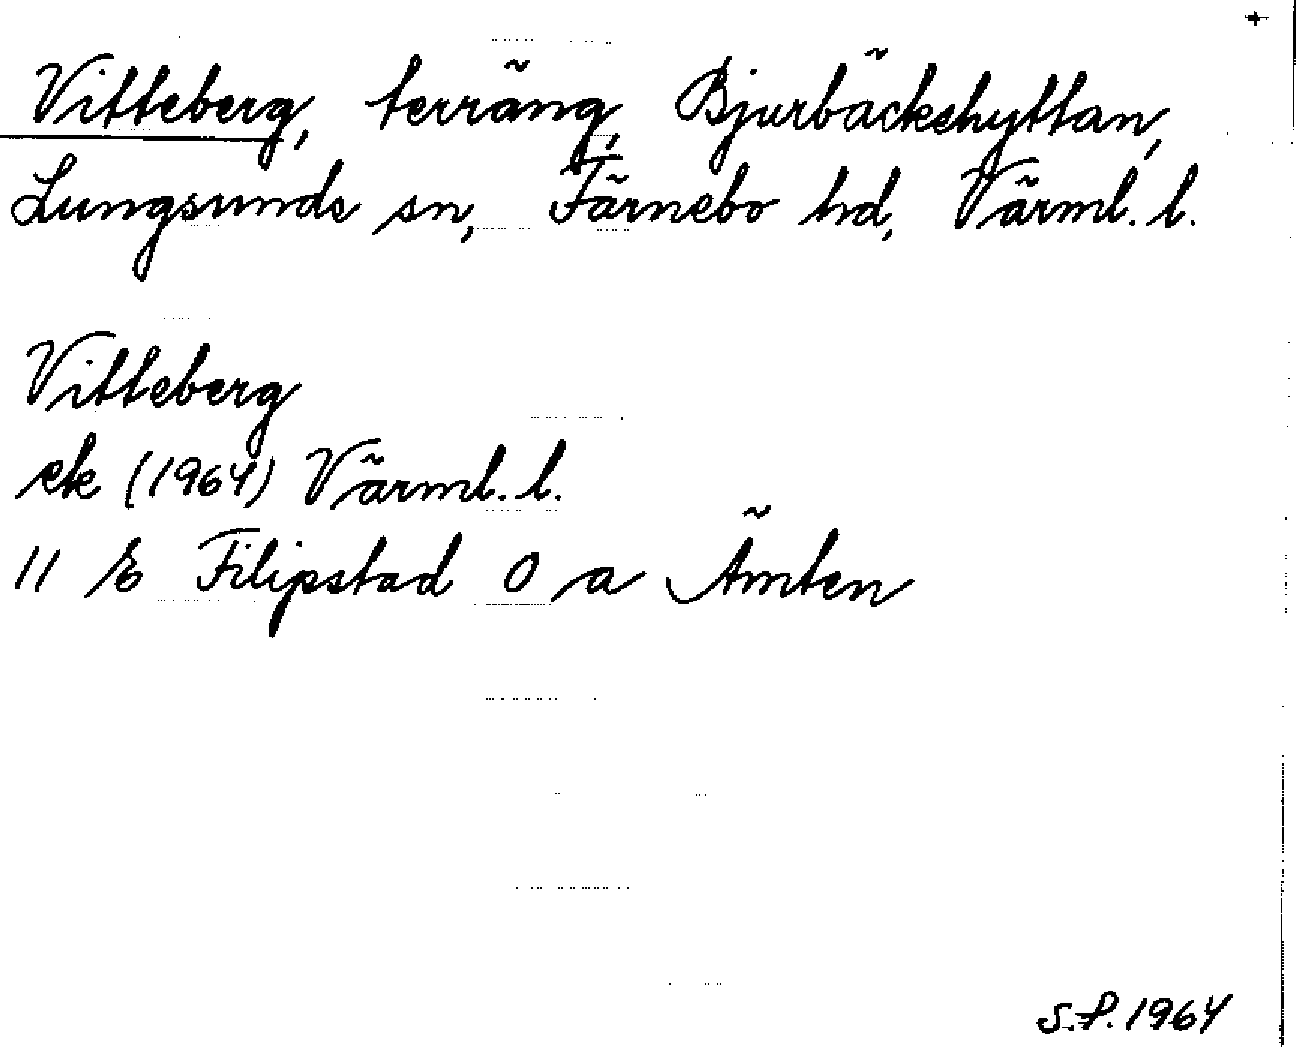 +
Vitteberg, terräng, Bjurbäckshyttan,
Lungsunds sn, Färnebo hd, Värml. l.
Vitteberg
ek (1964) Värml. l.
11 E Filipstad 0 a Ämten
S.P. 1964